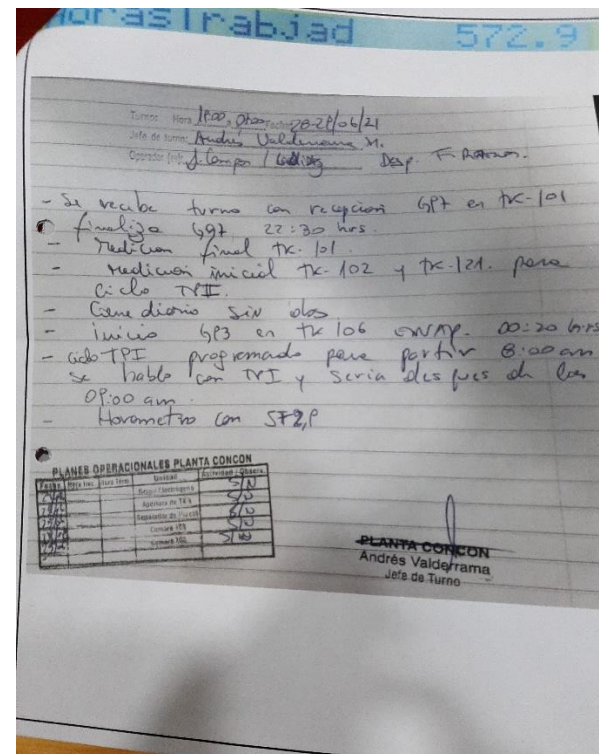 HorasTrabjad 572.9
Turnos Hora 1900 a 0700 Fecha 28-29/06/21
Jefe de turno: Andrés Valderrama M.
Operador J. Campos / Desp.
- Se recibe turno con recepcion GP7 en TK-101
finaliza G97 22:30 hrs.
- Medicion final TK-101.
- Medicion inicial TK-102 y TK-121. para
Ciclo TPI.
- Cierre diario sin obs
- inicio GP3 en TK 106 00:20 hrs
- Ciclo TPI programado para partir 8:00 am
se hablo con TPI y seria despues de las
09:00 am.
- Horometro con 572,9
PLANES OPERACIONALES PLANTA CONCON
Fecha Hora Inic. Hora Térm. Unidad Actividad / Observ.
Grupo Electrógeno S/N
Apertura de TK's S/N
Separador de Placas S/N
Camara S/N
Camara S/N
PLANTA CONCON
Andrés Valderrama
Jefe de Turno